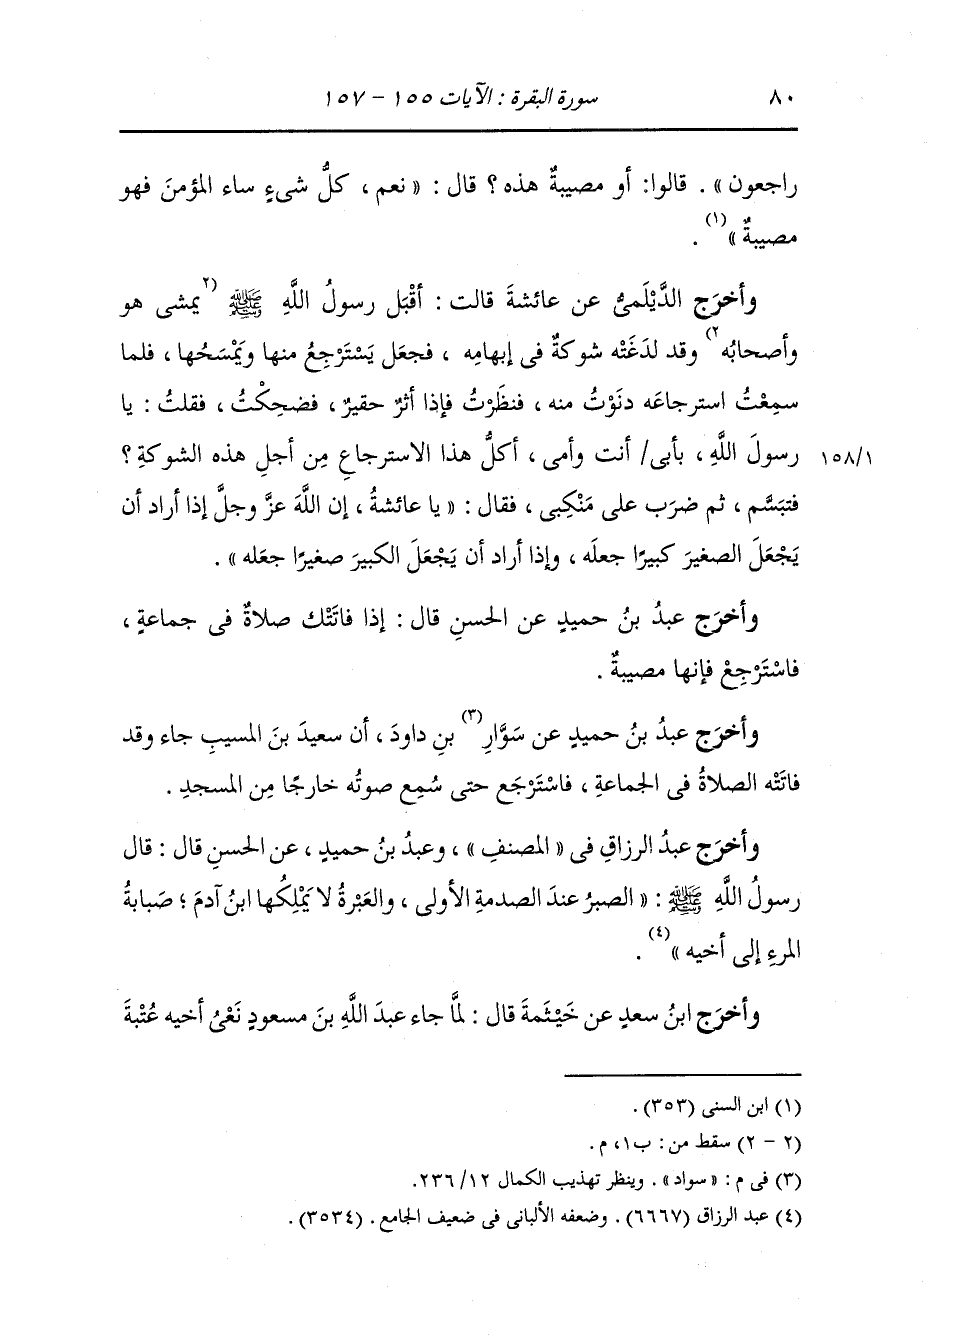 ٨٠ سورة البقرة : الآيات ١٥٥ – ١٥٧
راجعون» . قالوا: أو مصيبةٌ هذه ؟ قال : « نعم ، كلُّ شىءٍ ساء المؤمنَ فهو
مصيبةٌ »(١) .
وأخرَج الدَّيْلَمىُّ عن عائشةَ قالت : أقْبَل رسولُ اللَّهِ ﷺ (٢يمشى هو
وأصحابُه٢) وقد لدَغَتْه شوكةٌ فى إبهامِه ، فجعَل يَسْتَرْجِعُ منها ويَمْسَحُها ، فلما
سمِعْتُ استرجاعَه دنَوْتُ منه ، فنظَرْتُ فإذا أثرٌ حقيرٌ ، فضحِكْتُ ، فقلتُ : يا
رسولَ اللَّهِ ، بأبى/ أنت وأمى ، أكلُّ هذا الاسترجاعِ مِن أجلِ هذه الشوكةِ ؟ ١٥٨/١
فتبَسَّم ، ثم ضرَب على مَنْكِبى ، فقال : « يا عائشةُ ، إن اللَّهَ عزَّ وجلَّ إذا أراد أن
يَجْعَلَ الصغيرَ كبيرًا جعلَه ، وإذا أراد أن يَجْعَلَ الكبيرَ صغيرًا جعَله » .
وأخرَج عبدُ بنُ حميدٍ عن الحسنِ قال : إذا فاتَتْك صلاةٌ فى جماعةٍ ،
فاسْتَرْجِعْ فإنها مصيبةٌ .
وأخرَج عبدُ بنُ حميدٍ عن سَوَّارِ(٣) بنِ داودَ ، أن سعيدَ بنَ المسيبِ جاء وقد
فاتَتْه الصلاةُ فى الجماعةِ ، فاسْتَرْجَع حتى سُمِع صوتُه خارجًا مِن المسجدِ .
وأخرَج عبدُ الرزاقِ فى « المصنفِ » ، وعبدُ بنُ حميدٍ ، عن الحسنِ قال : قال
رسولُ اللَّهِ ﷺ : « الصبرُ عندَ الصدمةِ الأولى ، والعَبْرةُ لا يَمْلِكُها ابنُ آدمَ ؛ صَبابةُ
المرءِ إلى أخيه »(٤) .
وأخرَج ابنُ سعدٍ عن خَيْثَمةَ قال : لمَّا جاء عبدَ اللَّهِ بنَ مسعودٍ نَعْىُ أخيه عُتْبةَ
(١) ابن السنى (٣٥٣) .
(٢ – ٢) سقط من : ب١، م .
(٣) فى م : « سواد» . وينظر تهذيب الكمال ٢٣٦/١٢.
(٤) عبد الرزاق (٦٦٦٧) . وضعفه الألبانى فى ضعيف الجامع . (٣٥٣٤) .